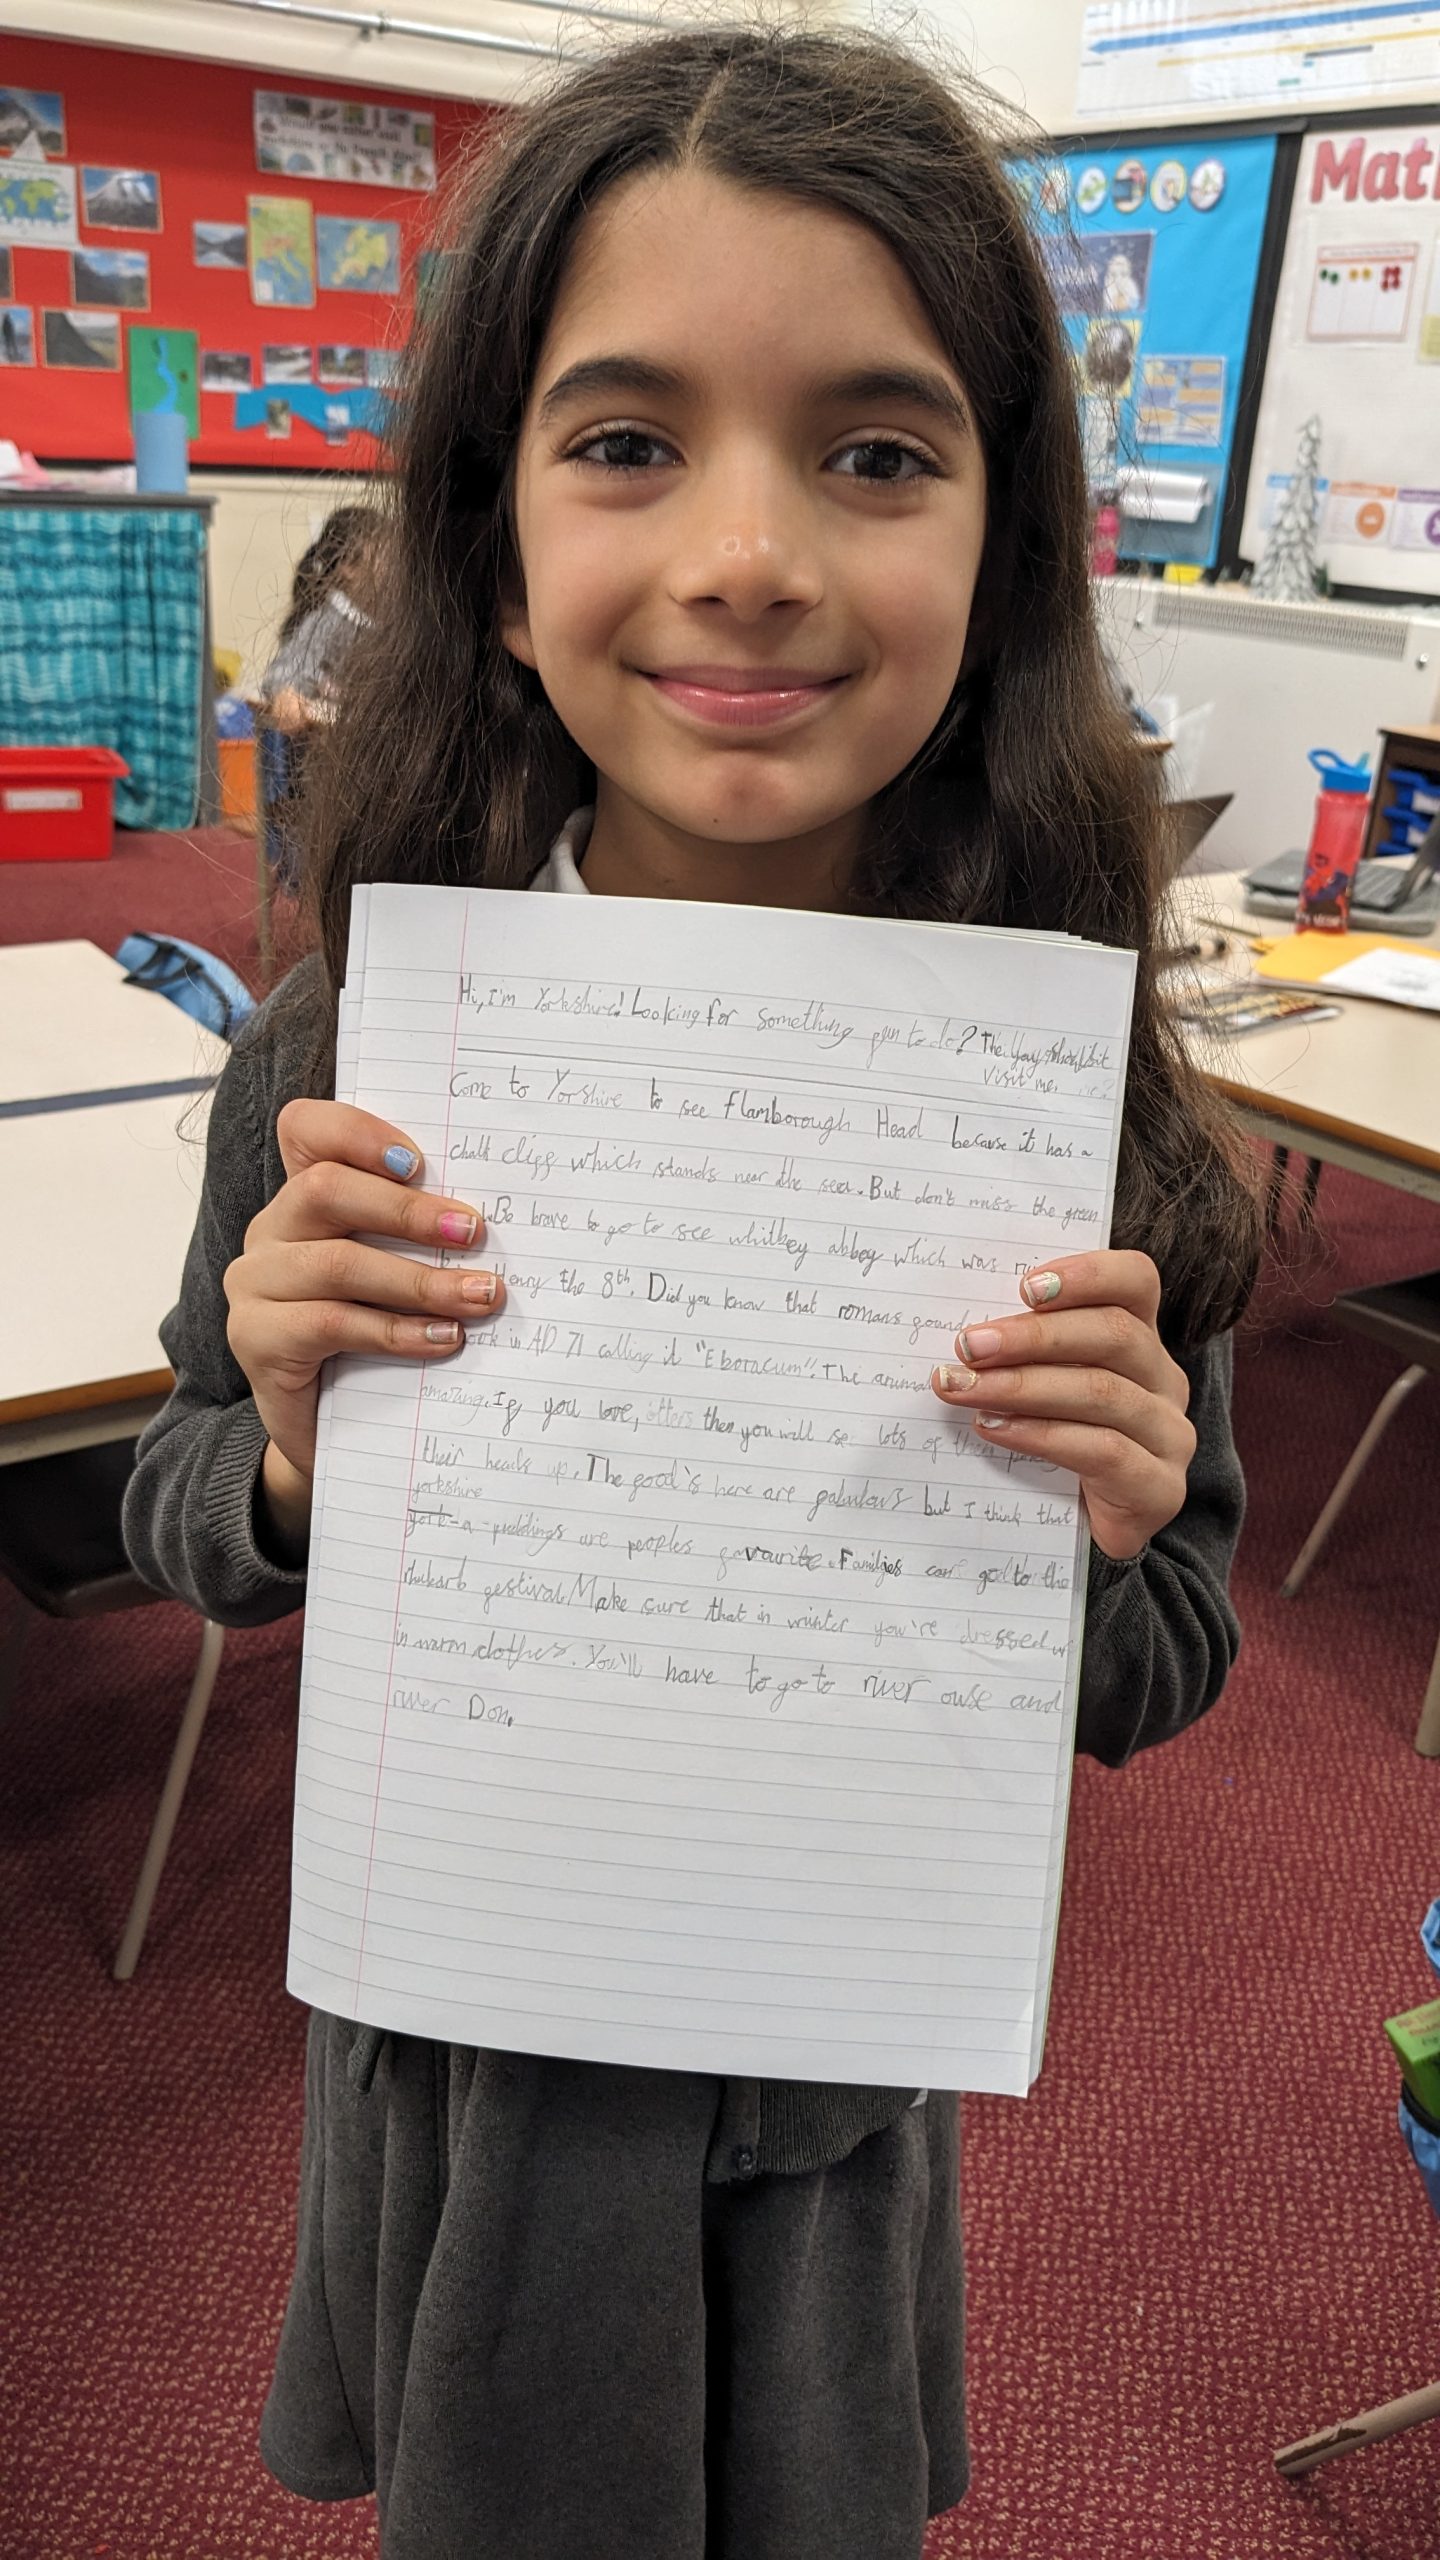 Hi, I'm Yorkshire! Looking for something fun to do? Then you should
visit me.
Come to Yorshire to see flamborough Head because it has a
chalk cliff which stands near the sea. But don't miss the green
Be brave to go to see whitbey abbey which was
Henry the 8th. Did you know that romans
in AD 71 calling it "Eboracum". The
amazing. If you love, otters then you will se lots of them
their heads up. The food's here are fabulous but I think that
yorkshire
york-a-puddings are peoples favourite. Families can go to the
rhubarb festival. Make sure that in winter you're dressed up
in warm clothes. You'll have to go to river ouse and
river Don.
Math